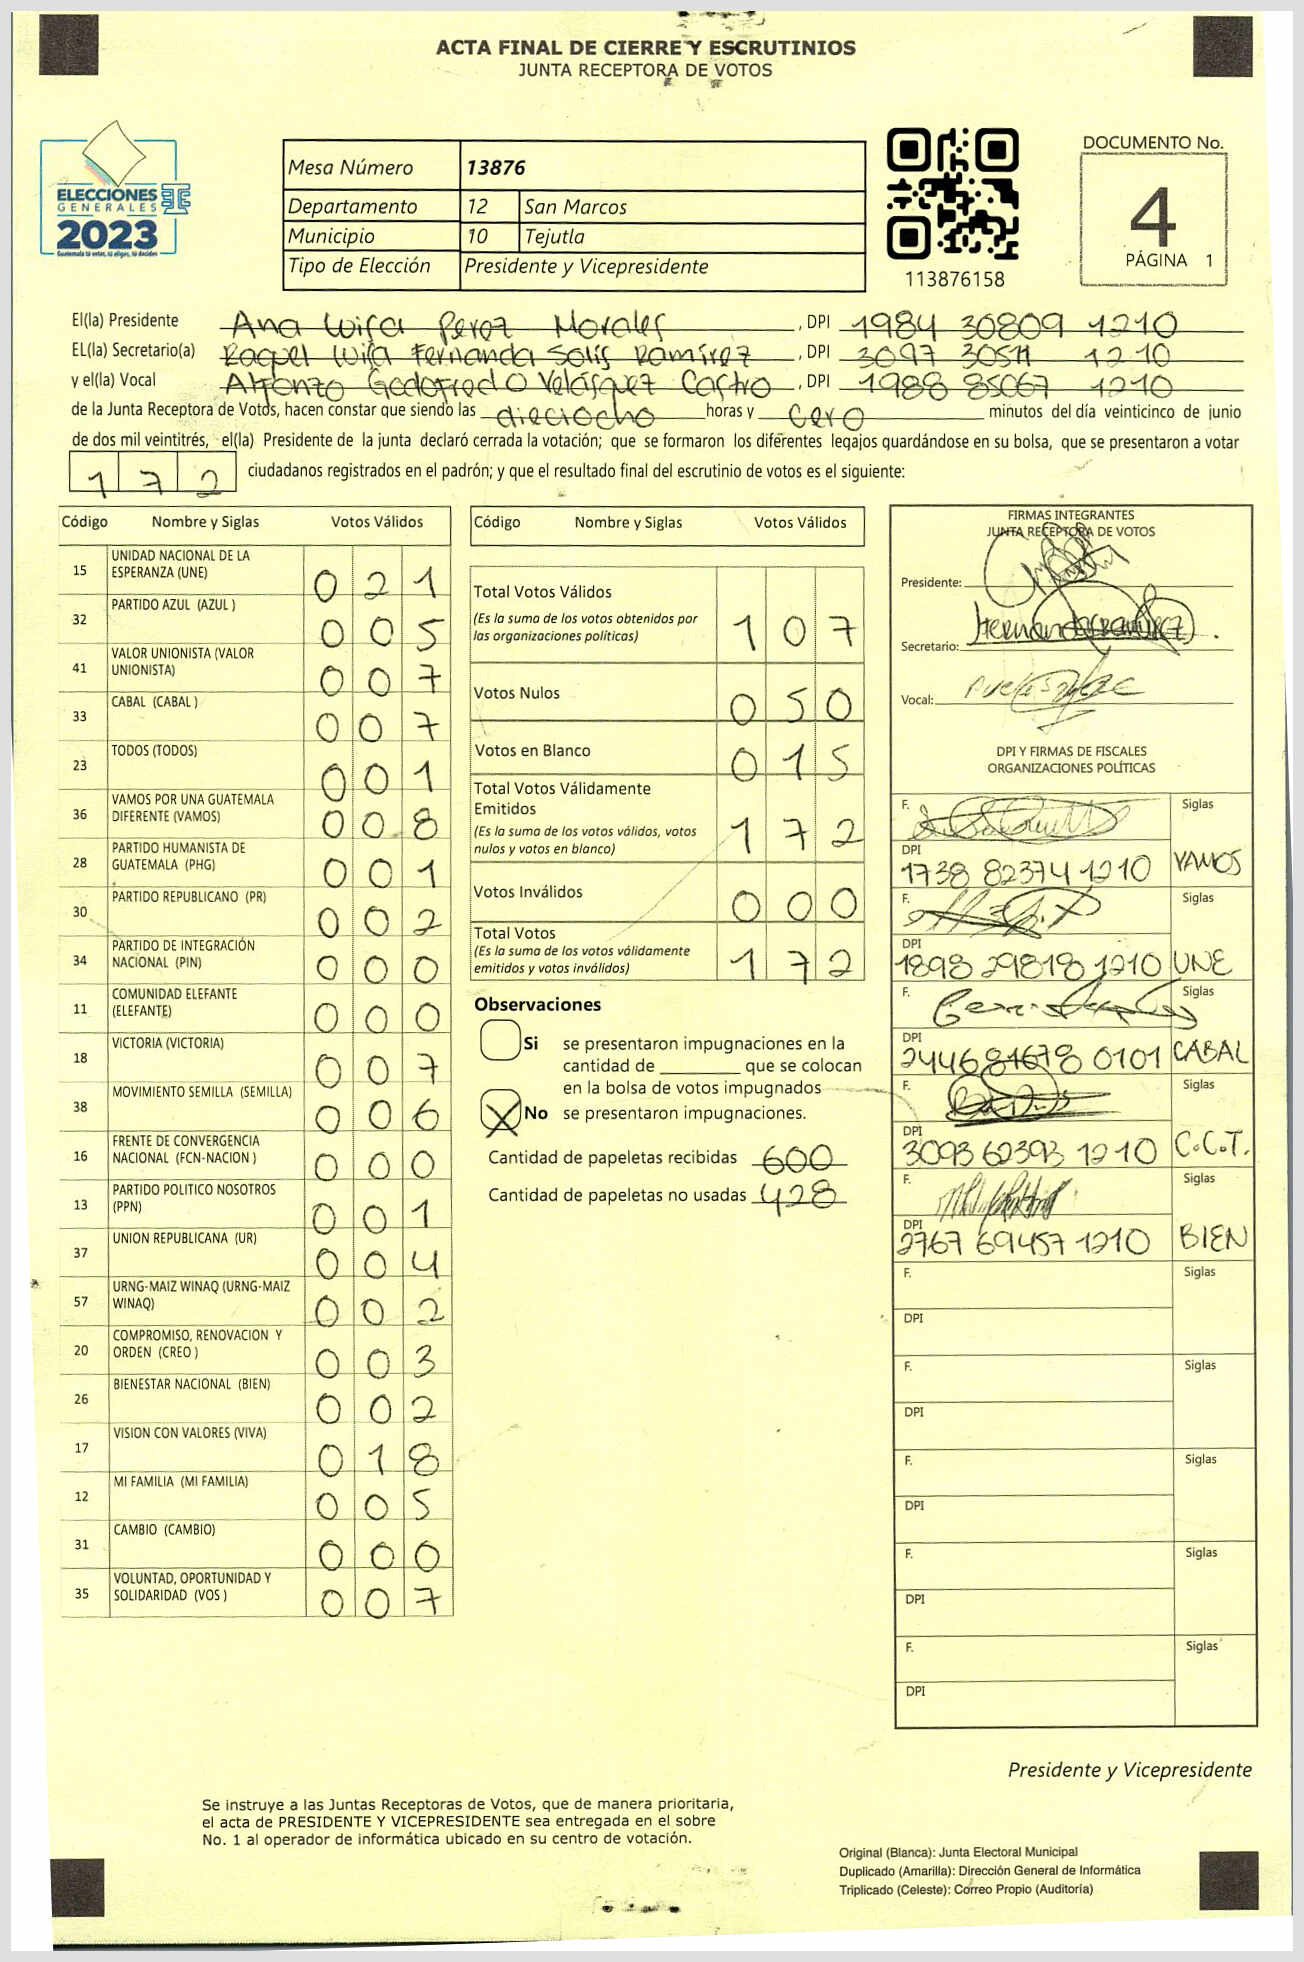 ACTA FINAL DE CIERRE Y ESCRUTINIOS
JUNTA RECEPTORA DE VOTOS
ELECCIONES
GENERALES
2023
Guatemala tú votas, tú eliges, tú decides
Mesa Número 13876
Departamento 12 San Marcos
Municipio 10 Tejutla
Tipo de Elección Presidente y Vicepresidente
113876158
DOCUMENTO No.
4
PÁGINA 1
El(la) Presidente Ana Luisa Perez Morales, DPI 1984 30809 1210
EL(la) Secretario(a) Raquel Luisa Fernanda Solis Ramírez, DPI 3097 30511 1210
y el(la) Vocal Alfonzo Godofredo Velásquez Castro, DPI 1988 85067 1210
de la Junta Receptora de Votos, hacen constar que siendo las dieciocho horas y cero minutos del día veinticinco de junio
de dos mil veintitrés, el(la) Presidente de la junta declaró cerrada la votación; que se formaron los diferentes legajos guardándose en su bolsa, que se presentaron a votar
1 7 2 ciudadanos registrados en el padrón; y que el resultado final del escrutinio de votos es el siguiente:
Código Nombre y Siglas Votos Válidos
15 UNIDAD NACIONAL DE LA ESPERANZA (UNE) 0 2 1
32 PARTIDO AZUL (AZUL ) 0 0 5
41 VALOR UNIONISTA (VALOR UNIONISTA) 0 0 7
33 CABAL (CABAL ) 0 0 7
23 TODOS (TODOS) 0 0 1
36 VAMOS POR UNA GUATEMALA DIFERENTE (VAMOS) 0 0 8
28 PARTIDO HUMANISTA DE GUATEMALA (PHG) 0 0 1
30 PARTIDO REPUBLICANO (PR) 0 0 2
34 PARTIDO DE INTEGRACIÓN NACIONAL (PIN) 0 0 0
11 COMUNIDAD ELEFANTE (ELEFANTE) 0 0 0
18 VICTORIA (VICTORIA) 0 0 7
38 MOVIMIENTO SEMILLA (SEMILLA) 0 0 6
16 FRENTE DE CONVERGENCIA NACIONAL (FCN-NACION ) 0 0 0
13 PARTIDO POLITICO NOSOTROS (PPN) 0 0 1
37 UNION REPUBLICANA (UR) 0 0 4
57 URNG-MAIZ WINAQ (URNG-MAIZ WINAQ) 0 0 2
20 COMPROMISO, RENOVACION Y ORDEN (CREO ) 0 0 3
26 BIENESTAR NACIONAL (BIEN) 0 0 2
17 VISION CON VALORES (VIVA) 0 1 8
12 MI FAMILIA (MI FAMILIA) 0 0 5
31 CAMBIO (CAMBIO) 0 0 0
35 VOLUNTAD, OPORTUNIDAD Y SOLIDARIDAD (VOS ) 0 0 7
Código Nombre y Siglas Votos Válidos
Total Votos Válidos
(Es la suma de los votos obtenidos por
las organizaciones políticas) 1 0 7
Votos Nulos 0 5 0
Votos en Blanco 0 1 5
Total Votos Válidamente
Emitidos
(Es la suma de los votos válidos, votos
nulos y votos en blanco) 1 7 2
Votos Inválidos 0 0 0
Total Votos
(Es la suma de los votos válidamente
emitidos y votos inválidos) 1 7 2
Observaciones
Si se presentaron impugnaciones en la
cantidad de ________ que se colocan
en la bolsa de votos impugnados
X No se presentaron impugnaciones.
Cantidad de papeletas recibidas 600
Cantidad de papeletas no usadas 428
FIRMAS INTEGRANTES
JUNTA RECEPTORA DE VOTOS
Presidente:
Secretario:
Vocal:
DPI Y FIRMAS DE FISCALES
ORGANIZACIONES POLÍTICAS
F. Siglas
DPI
1738 82374 1210 VAMOS
F. Siglas
DPI
1898 29818 1210 UNE
F. Siglas
DPI
2446 81678 0101 CABAL
F. Siglas
DPI
3093 62393 1210 C.C.T.
F. Siglas
DPI
2767 69457 1210 BIEN
F. Siglas
DPI
F. Siglas
DPI
F. Siglas
DPI
F. Siglas
DPI
F. Siglas
DPI
Presidente y Vicepresidente
Se instruye a las Juntas Receptoras de Votos, que de manera prioritaria,
el acta de PRESIDENTE Y VICEPRESIDENTE sea entregada en el sobre
No. 1 al operador de informática ubicado en su centro de votación.
Original (Blanca): Junta Electoral Municipal
Duplicado (Amarilla): Dirección General de Informática
Triplicado (Celeste): Correo Propio (Auditoría)